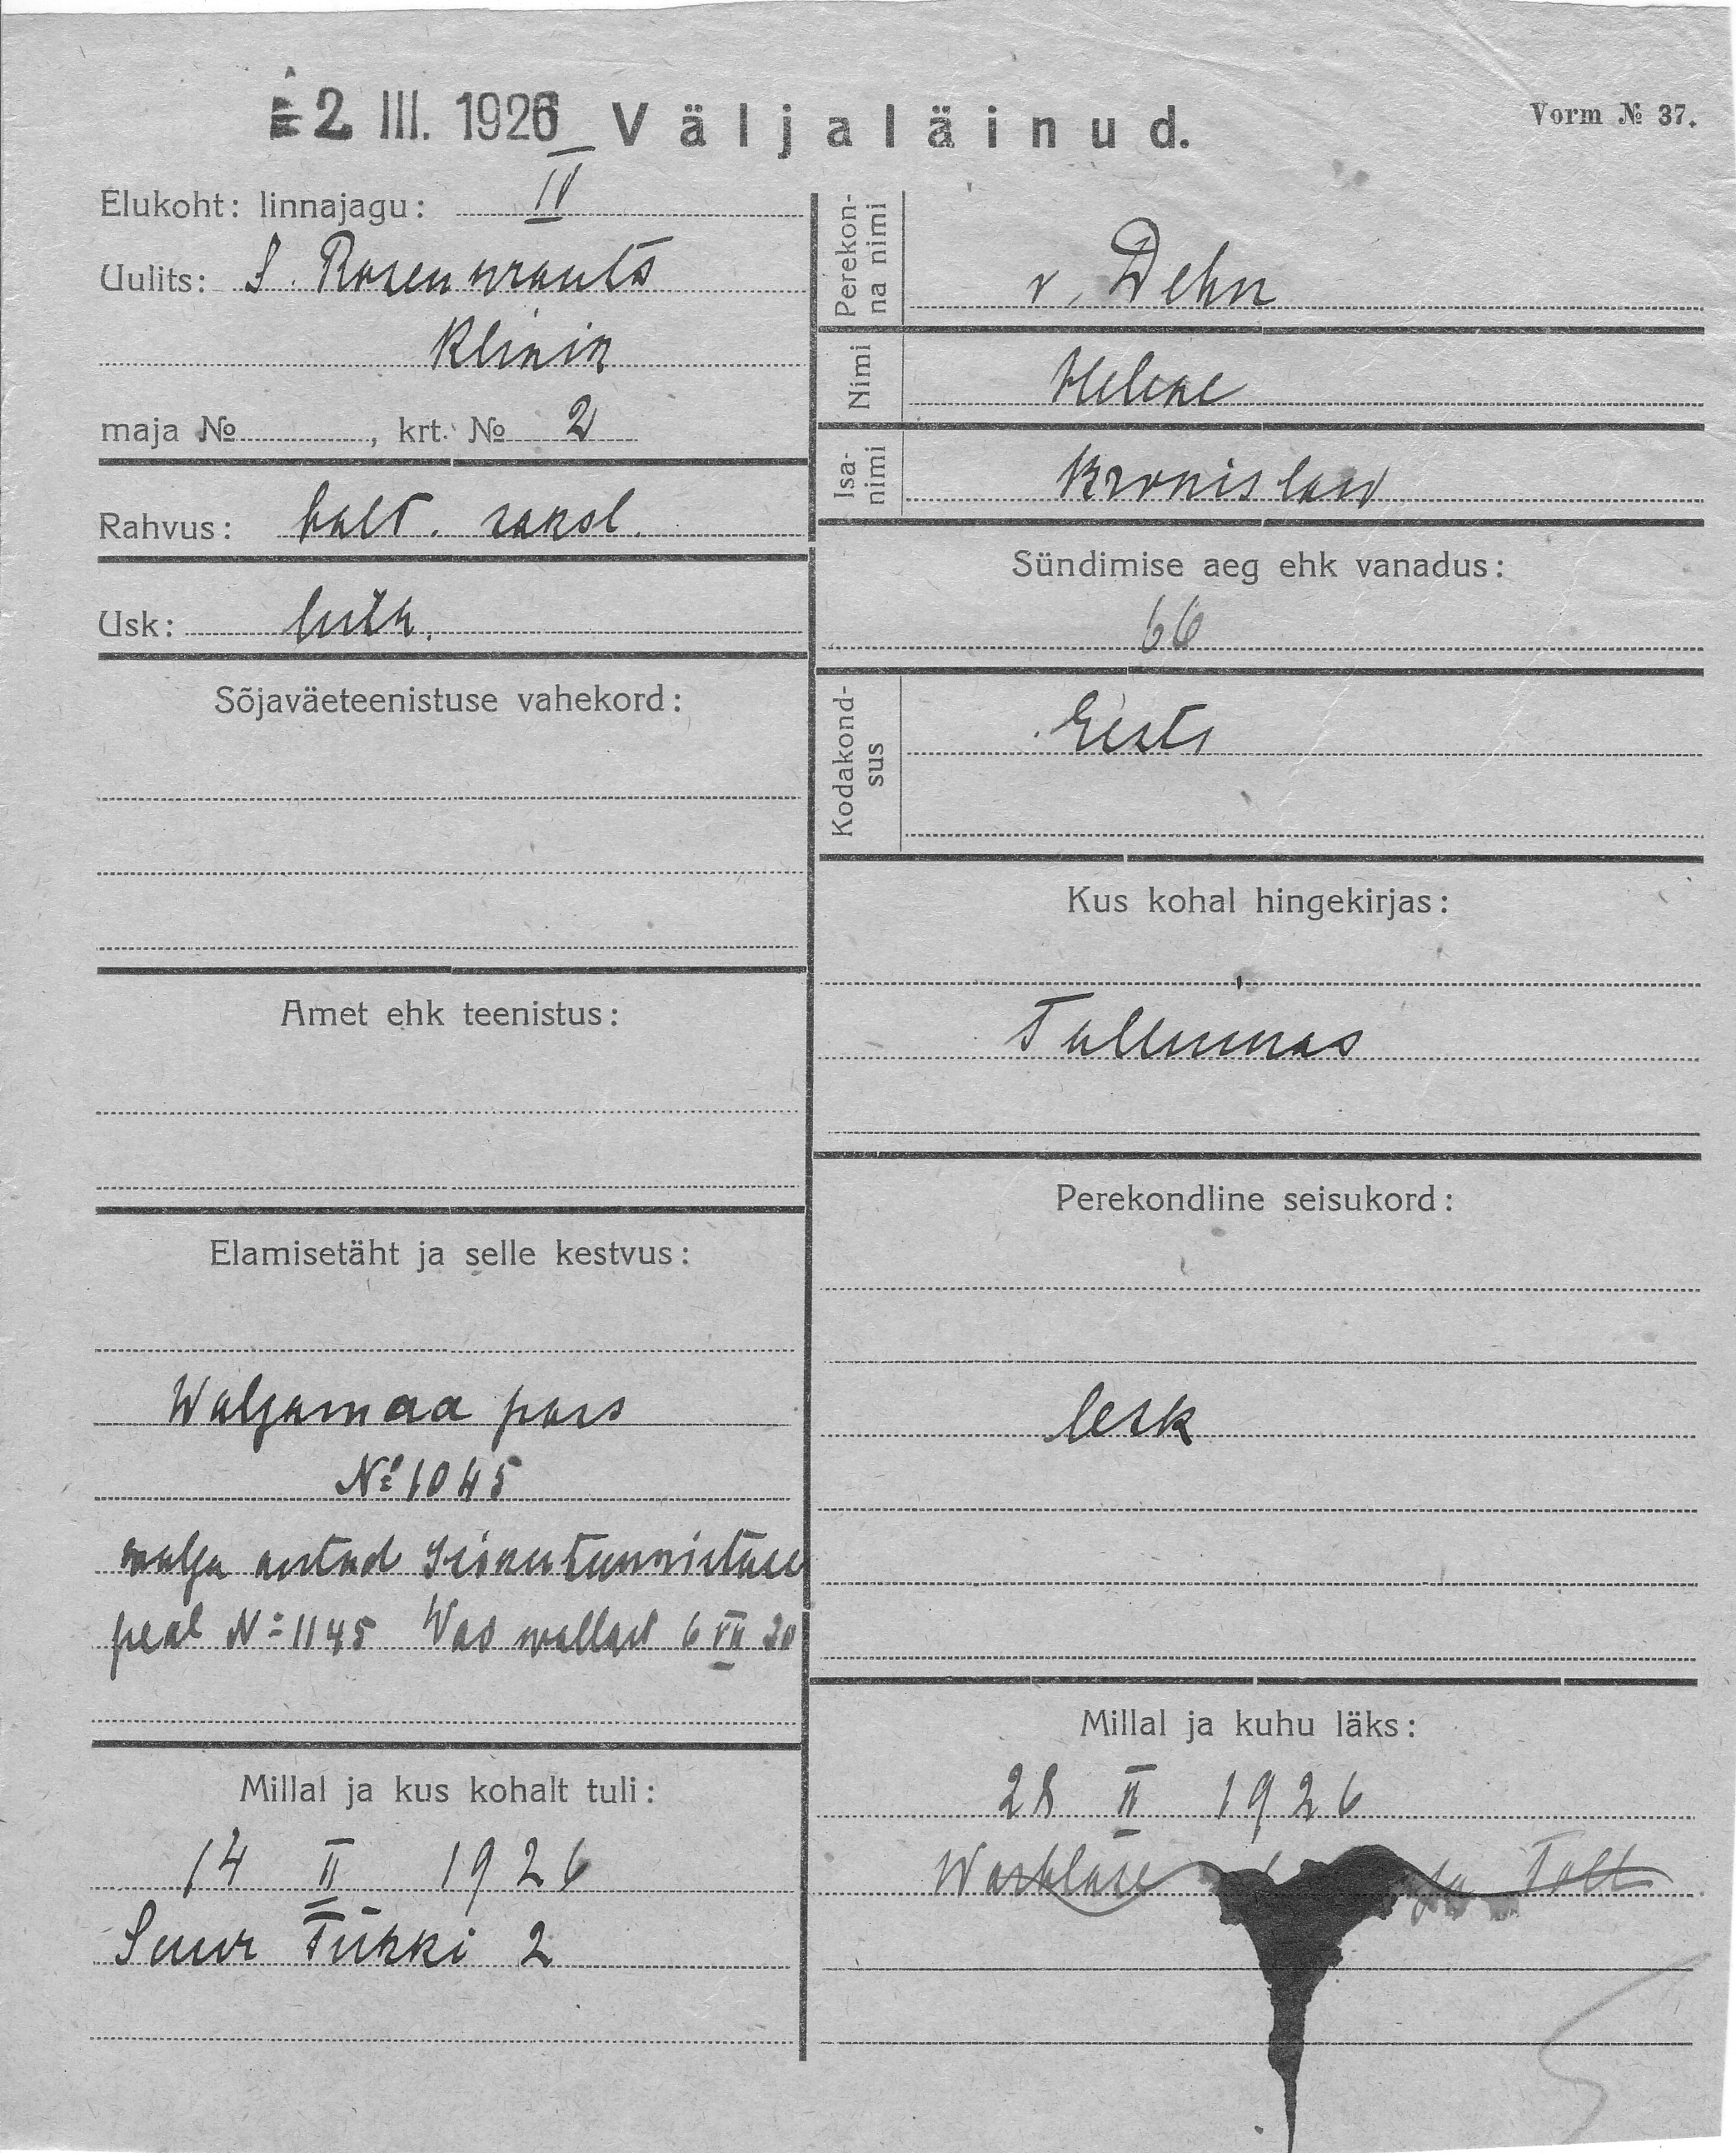 2 III. 1926 Väljaläinud.
Vorm № 37.
Elukoht: linnajagu: IV
Uulits: S. Rosenkrants
Klinik
maja № , krt. № 2
Rahvus: balt. saksl.
Usk: luth.
Sõjaväeteenistuse vahekord:
Amet ehk teenistus:
Elamisetäht ja selle kestvus:
Walgamaa pass
№ 1045
walja antud Isikutunnistuse
peal № 1145 Wao wallast 6 VII 20
Millal ja kus kohalt tuli:
14 II 1926
Suur Türki 2
Perekon-
na nimi
v. Dehn
Nimi
Helene
Isa-
nimi
Bronislaw
Sündimise aeg ehk vanadus:
66
Kodakond-
sus
Eesti
Kus kohal hingekirjas:
Tallinnas
Perekondline seisukord:
lesk
Millal ja kuhu läks:
28 II 1926